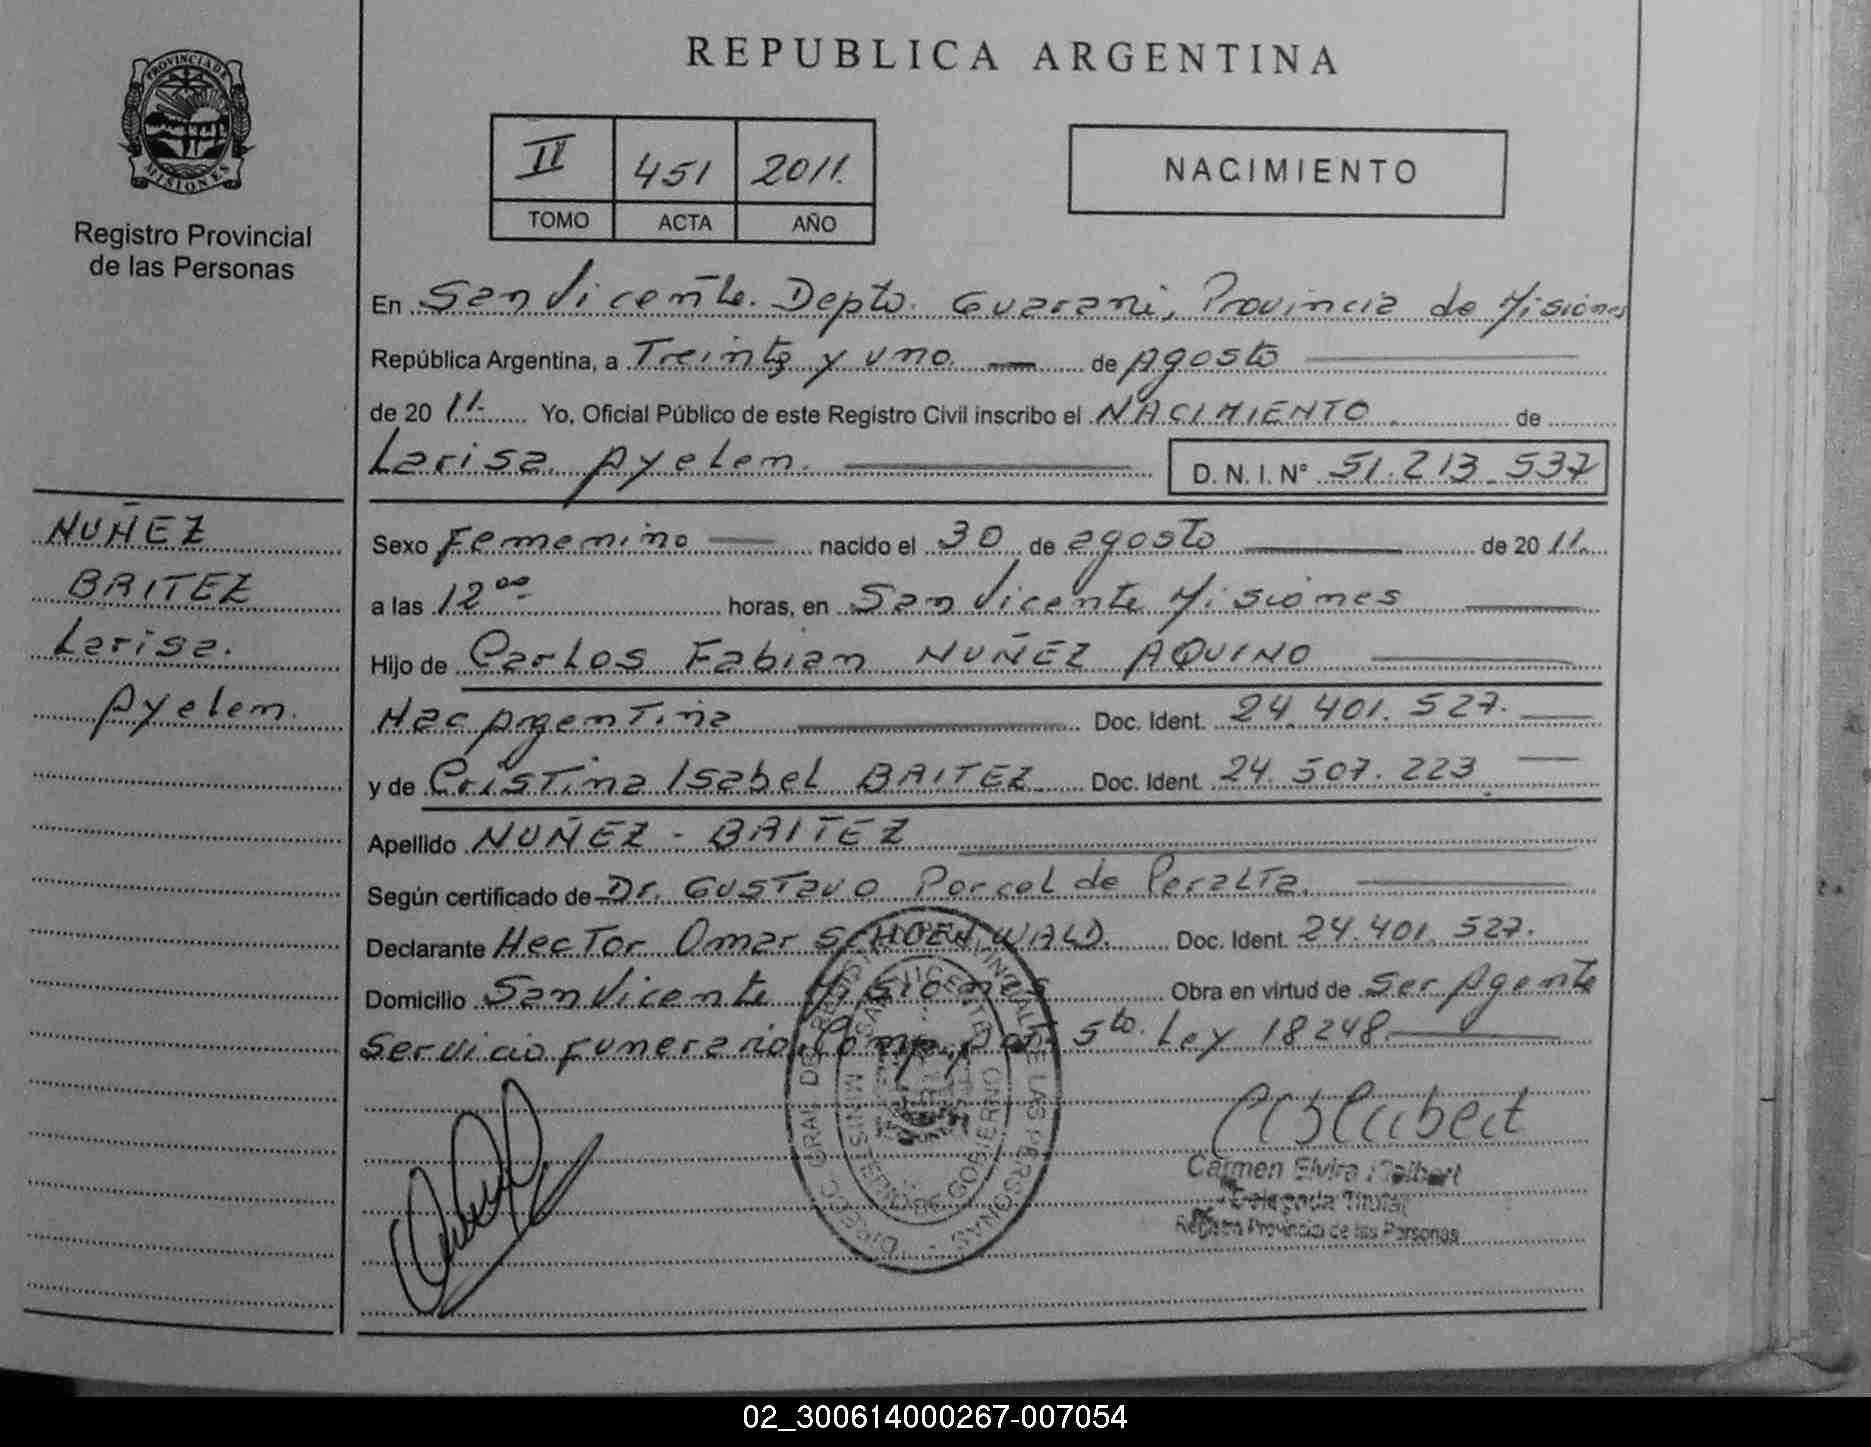 PROVINCIA DE
MISIONES
Registro Provincial
de las Personas
NUÑEZ
BRITEZ
Larisa.
Ayelen.
REPUBLICA ARGENTINA
II 451 2011.
TOMO ACTA AÑO
NACIMIENTO
En San Vicente. Depto. Guarani, Provincia de Misiones
República Argentina, a Treinta y uno. — de Agosto
de 20 11.- Yo, Oficial Público de este Registro Civil inscribo el NACIMIENTO de
Larisa Ayelen. D. N. I. N° 51.213.537
Sexo Femenino nacido el 30 de agosto de 20 11.
a las 12 00 horas, en San Vicente Misiones
Hijo de Carlos Fabian NUÑEZ AQUINO
Nac Argentina Doc. Ident. 24.401.527.
y de Cristina Isabel BRITEZ Doc. Ident. 24.507.223
Apellido NUÑEZ - BRITEZ
Según certificado de Dr. Gustavo Porcel de Peralta.
Declarante Hector Omar SCHOENWALD. Doc. Ident. 24.401.527.
Domicilio San Vicente Misiones Obra en virtud de Ser Agente
Servicio Funerario, 5to. Ley 18248
DIRECC. GRAL. DE REG. PROVINCIAL DE LAS PERSONAS
SAN VICENTE
MINISTERIO DE GOBIERNO
Carmen Elvira
Delegada Titular
Registro Provincial de las Personas
02_300614000267-007054